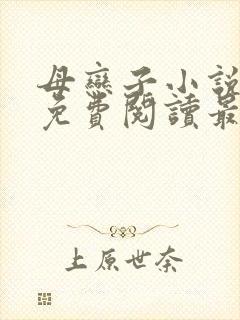 母戀子小說
免費閱讀最
上原世奈